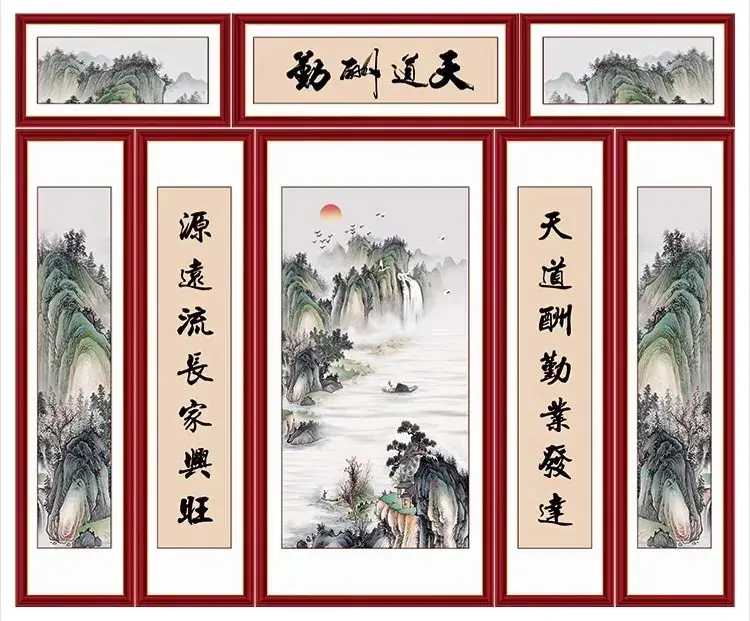 天道酬勤
天道酬勤業發達
源遠流長家興旺